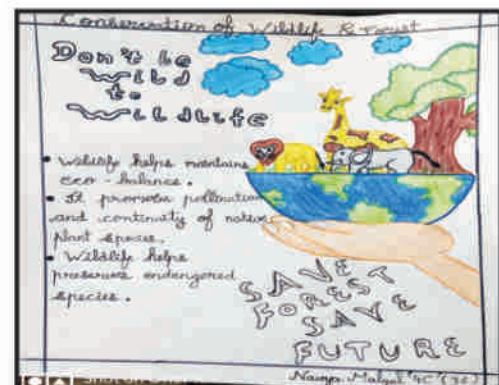 Conservation of Wildlife & Forest
Don't be
Wild
to
Wildlife
• Wildlife helps maintains
eco-balance.
• It promotes pollination
and continuity of native
plant species.
• Wildlife helps
preserves endangered
species.
SAVE
FOREST
SAVE
FUTURE